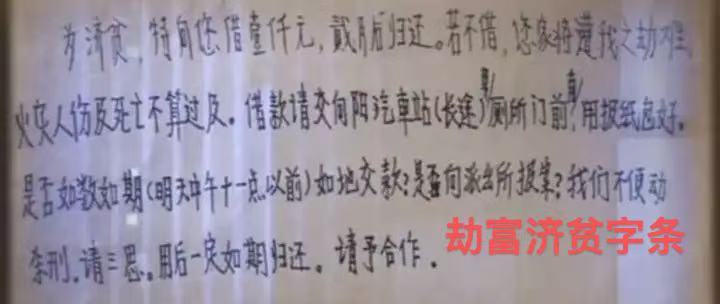 为济贫,特向您借壹仟元,贰月后归还。若不借,您家将遭我之劫难,
火灾人伤及死亡不算过及。借款请交向阳汽車站(长途)男厕所门前,用报纸包好。
是否如数如期(明天中午十一点以前)如地交款?是否向派出所报案?我们不便动
刑,请三思。用后一定如期归还。请予合作.
劫富济贫字条